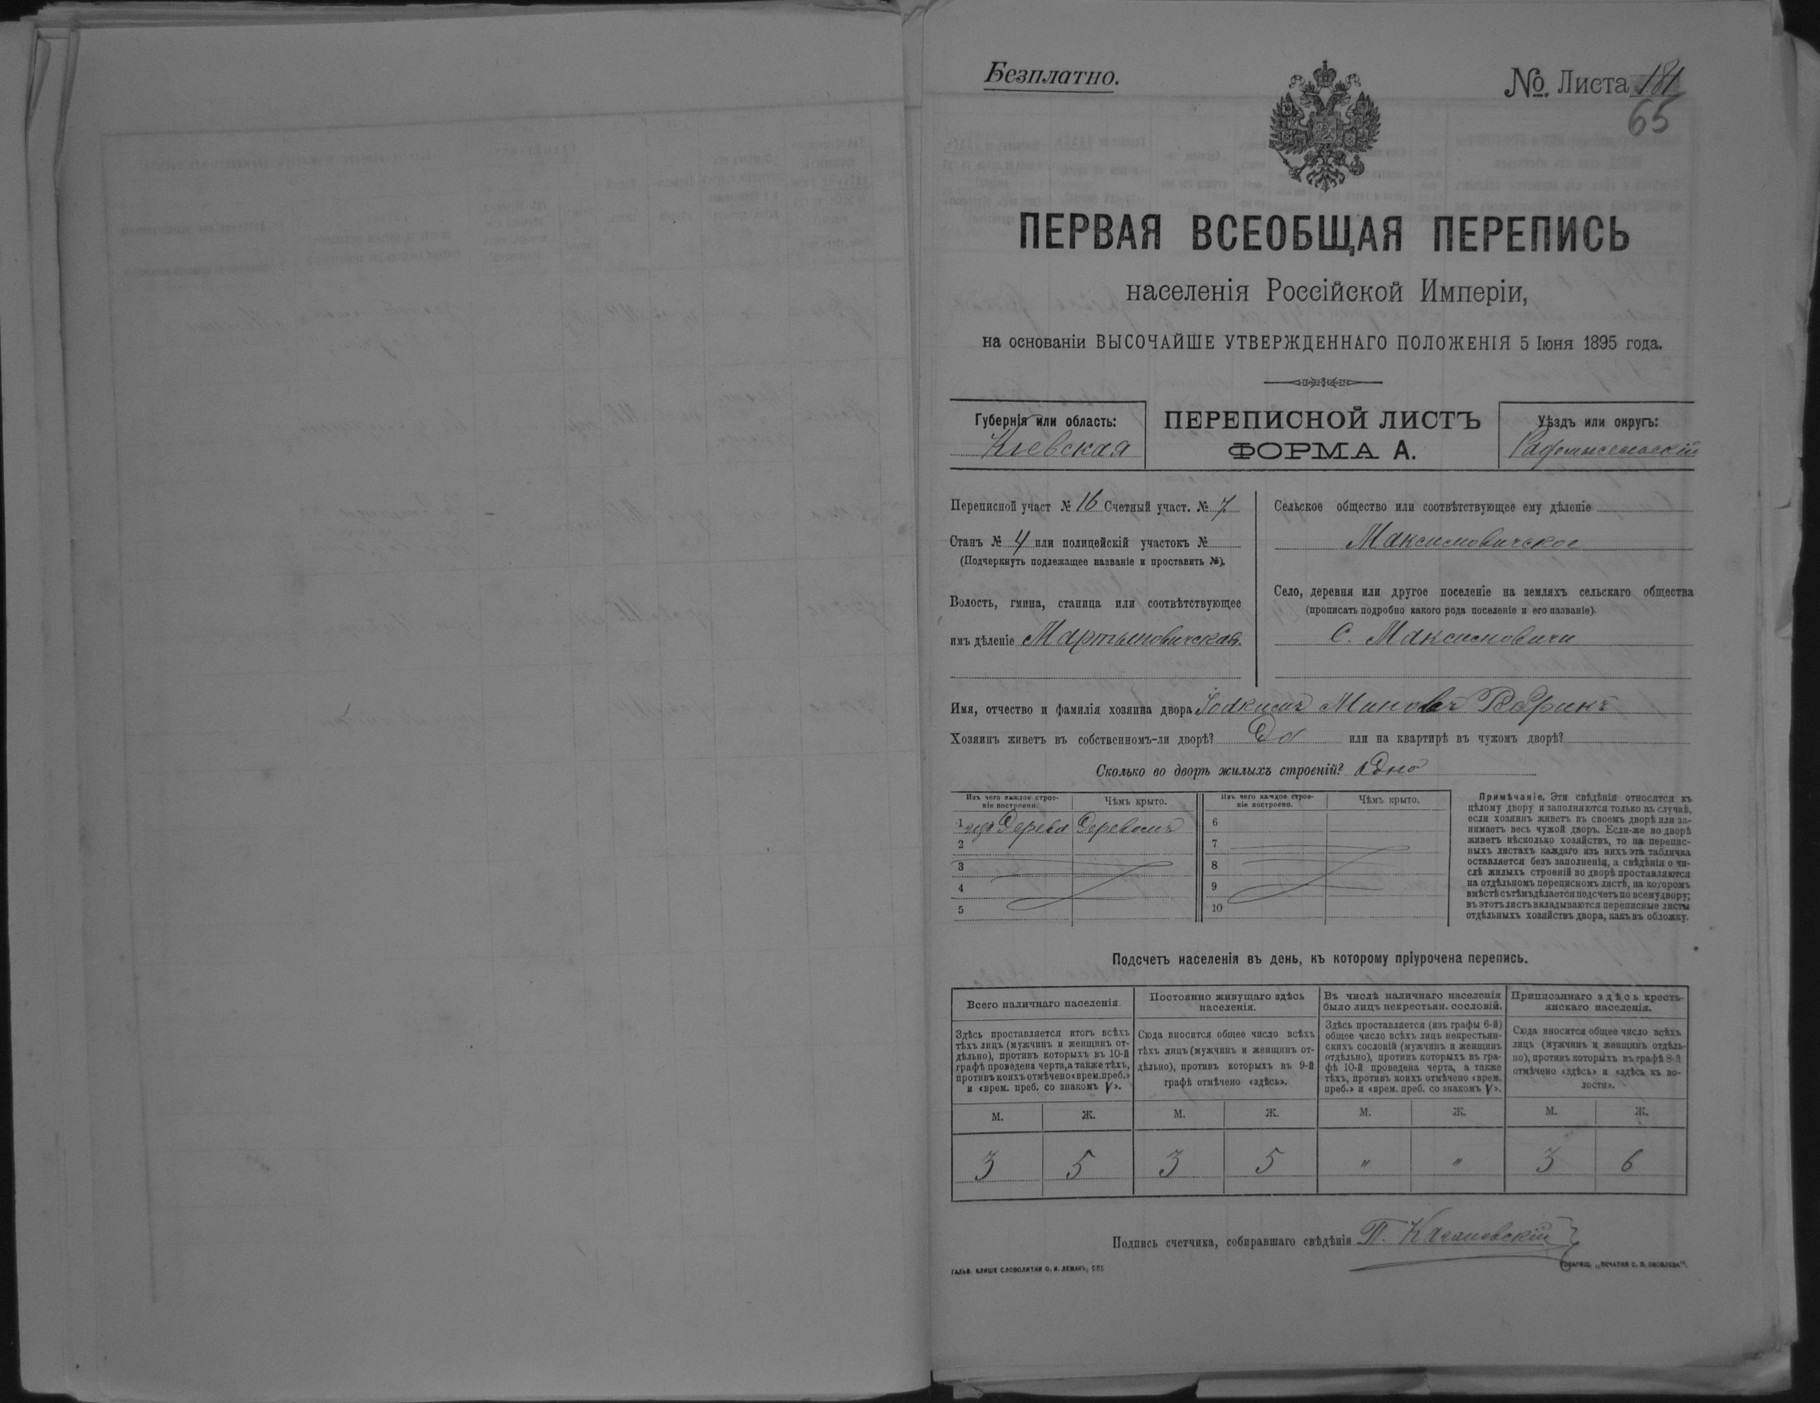 Безплатно.
№ Листа 181
65
ПЕРВАЯ ВСЕОБЩАЯ ПЕРЕПИСЬ
населенія Россійской Имперіи,
на основаніи ВЫСОЧАЙШЕ УТВЕРЖДЕННАГО ПОЛОЖЕНІЯ 5 Іюня 1895 года.
Губернія или область:
Кіевская
ПЕРЕПИСНОЙ ЛИСТЪ
ФОРМА А.
Уѣздъ или округъ:
Радомысльскій
Переписной участ № 16 Счетный участ. № 7
Станъ № 4 или полицейскій участокъ №
(Подчеркнуть подлежащее названіе и проставить №).
Волость, гмина, станица или соотвѣтствующее
имъ дѣленіе Мартыновичская
Сельское общество или соотвѣтствующее ему дѣленіе
Максимовичское
Село, деревня или другое поселеніе на земляхъ сельскаго общества
(прописать подробно какого рода поселеніе и его названіе).
С. Максимовичи
Имя, отчество и фамилія хозяина двора
Хозяинъ живетъ въ собственномъ-ли дворѣ? Да или на квартирѣ въ чужомъ дворѣ?
Сколько во дворѣ жилыхъ строеній? Одно
Изъ чего каждое строе-
ніе построено.
Чѣмъ крыто.
1 изъ Дерева Деревомъ
2
3
4
5
Изъ чего каждое строе-
ніе построено.
Чѣмъ крыто.
6
7
8
9
10
Примѣчаніе. Эти свѣдѣнія относятся къ
цѣлому двору и заполняются только въ случаѣ,
если хозяинъ живетъ въ своемъ дворѣ или за-
нимаетъ весь чужой дворъ. Если-же во дворѣ
живетъ нѣсколько хозяйствъ, то на перепис-
ныхъ листахъ каждаго изъ нихъ эта табличка
оставляется безъ заполненія, а свѣдѣнія о чи-
слѣ жилыхъ строеній во дворѣ проставляются
на отдѣльномъ переписномъ листѣ, на которомъ
вмѣстѣ съ тѣмъ дѣлается подсчетъ по всему двору;
въ этотъ листъ вкладываются переписные листы
отдѣльныхъ хозяйствъ двора, какъ въ обложку.
Подсчетъ населенія въ день, къ которому пріурочена перепись.
Всего наличнаго населенія.
Здѣсь проставляется итогъ всѣхъ
тѣхъ лицъ (мужчинъ и женщинъ от-
дѣльно), противъ которыхъ въ 10-й
графѣ проведена черта, а также тѣхъ,
противъ коихъ отмѣчено «врем. преб.»
и «врем. преб. со знакомъ V».
Постоянно живущаго здѣсь
населенія.
Сюда вносится общее число всѣхъ
тѣхъ лицъ (мужчинъ и женщинъ от-
дѣльно), противъ которыхъ въ 9-й
графѣ отмѣчено «здѣсь».
Въ числѣ наличнаго населенія
было лицъ некрестьян. сословій.
Здѣсь проставляется (изъ графы 6-й)
общее число всѣхъ лицъ некрестьян-
скихъ сословій (мужчинъ и женщинъ
отдѣльно), противъ которыхъ въ гра-
фѣ 10-й проведена черта, а также
тѣхъ, противъ коихъ отмѣчено «врем.
преб.» и «врем. преб. со знакомъ V».
Приписаннаго здѣсь кресть-
янскаго населенія.
Сюда вносится общее число всѣхъ
лицъ (мужчинъ и женщинъ отдѣль-
но), противъ которыхъ въ графѣ 8-й
отмѣчено «здѣсь» и «здѣсь къ во-
лости».
М. Ж. М. Ж. М. Ж. М. Ж.
3 5 3 5 " " 3 6
Подпись счетчика, собиравшаго свѣдѣнія П.
ГАЛЬВ. КЛИШЕ СЛОВОЛИТНИ О. И. ЛЕМАНЪ, СПБ
ТОВАРИЩ. „ПЕЧАТНЯ С. П. ЯКОВЛЕВА".